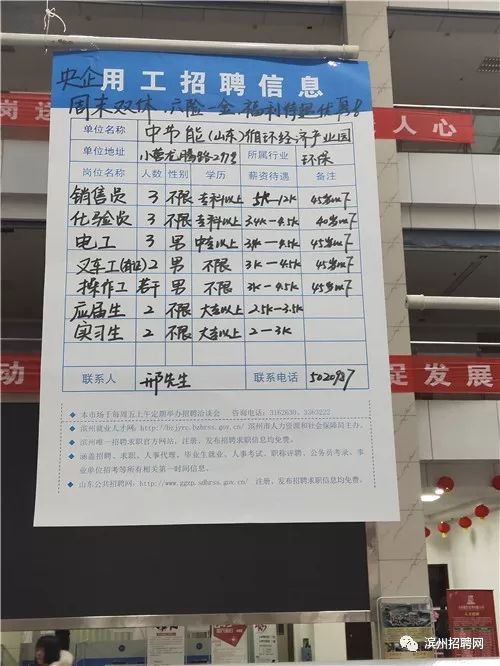 央企用工招聘信息
周末双休 六险一金 福利待遇优厚!
岗
人心
单位名称 中节能(山东)循环经济产业园
单位地址 小营龙腾路279 所属行业 环保
岗位名称 人数 性别 学历 薪资待遇 备注
销售员 3 不限 专科以上 5K-12K 45岁以下
化验员 3 不限 专科以上 3.4K-4.5K 40岁以下
电工 3 男 中专以上 3.4K-4.5K 45岁以下
叉车工 2 男 不限 3K-4.5K 45岁以下
操作工 若干 男 不限 3K-4.5K 45岁以下
应届生 2 不限 大专以上 2.5K-3.5K
实习生 2 不限 大专以上 2-3K
联系人 邢先生 联系电话
动
促发展
◆ 本市场于每周五上午定期举办招聘洽谈会 咨询电话:3162630、3363222
◆ 滨州就业人才网:http://bzjyrc.bzhrss.gov.cn/ 滨州市人力资源和社会保障局主办。
◆ 滨州唯一招聘求职官方网站,注册、发布招聘求职信息均免费。
◆ 涵盖招聘、求职、人事代理、毕业生就业、人事考试、职称评聘、公务员考录、事
业单位招考等所有相关第一时间信息。
◆ 山东公共招聘网:http://www.ggzp.sdhrss.gov.cn/ 注册、发布招聘求职信息均免费。
滨州招聘网